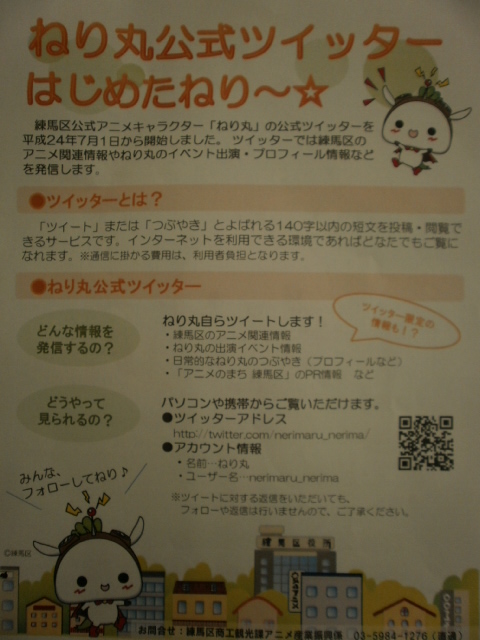 ねり丸公式ツイッター
はじめたねり～☆
練馬区公式アニメキャラクター「ねり丸」の公式ツイッターを
平成24年7月1日から開始しました。ツイッターでは練馬区の
アニメ関連情報やねり丸のイベント出演・プロフィール情報など
を発信します。
●ツイッターとは？
「ツイート」または「つぶやき」とよばれる140字以内の短文を投稿・閲覧で
きるサービスです。インターネットを利用できる環境であればどなたでもご覧に
なれます。※通信に掛かる費用は、利用者負担となります。
●ねり丸公式ツイッター
どんな情報を
発信するの？
ねり丸自らツイートします！
・練馬区のアニメ関連情報
・ねり丸の出演イベント情報
・日常的なねり丸のつぶやき（プロフィールなど）
・「アニメのまち 練馬区」のPR情報 など
ツイッター限定の
情報も！？
どうやって
見られるの？
パソコンや携帯からご覧いただけます。
●ツイッターアドレス
http://twitter.com/nerimaru_nerima/
●アカウント情報
・名前…ねり丸
・ユーザー名…nerimaru_nerima
※ツイートに対する返信をいただいても、
フォローや返信は行いませんので、ご了承ください。
みんな、
フォローしてねり♪
©練馬区
練馬区役所
お問合せ：練馬区商工観光課アニメ産業振興係 03-5984-1276（直通）